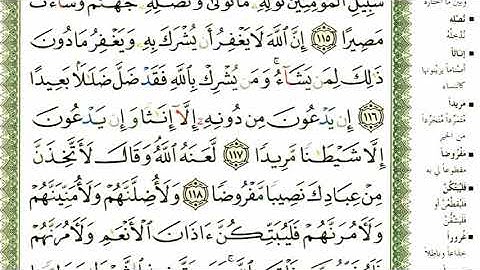 سَبِيلِ ٱلْمُؤْمِنِينَ نُوَلِّهِۦ مَا تَوَلَّىٰ وَنُصْلِهِۦ جَهَنَّمَ وَسَآءَتْ
مَصِيرًا ١١٥ إِنَّ ٱللَّهَ لَا يَغْفِرُ أَن يُشْرَكَ بِهِۦ وَيَغْفِرُ مَا دُونَ
ذَٰلِكَ لِمَن يَشَآءُ ۚ وَمَن يُشْرِكْ بِٱللَّهِ فَقَدْ ضَلَّ ضَلَـٰلًۢا بَعِيدًا
١١٦ إِن يَدْعُونَ مِن دُونِهِۦٓ إِلَّآ إِنَـٰثًا وَإِن يَدْعُونَ
إِلَّا شَيْطَـٰنًا مَّرِيدًا ١١٧ لَّعَنَهُ ٱللَّهُ ۘ وَقَالَ لَأَتَّخِذَنَّ
مِنْ عِبَادِكَ نَصِيبًا مَّفْرُوضًا ١١٨ وَلَأُضِلَّنَّهُمْ وَلَأُمَنِّيَنَّهُمْ
وَلَـَٔامُرَنَّهُمْ فَلَيُبَتِّكُنَّ ءَاذَانَ ٱلْأَنْعَـٰمِ وَلَـَٔامُرَنَّهُمْ
نُصْلِهِ
نُدْخِلْهُ
إِنَاثًا
أصنامًا يزينونها
كالنساء
مَرِيدًا
متمردًا متجردًا
من الخير
مَفْرُوضًا
مقطوعًا لي به
فَلَيُبَتِّكُنَّ
فليقطعن أو
فليشقن
غُرُورًا
خداعًا وباطلًا